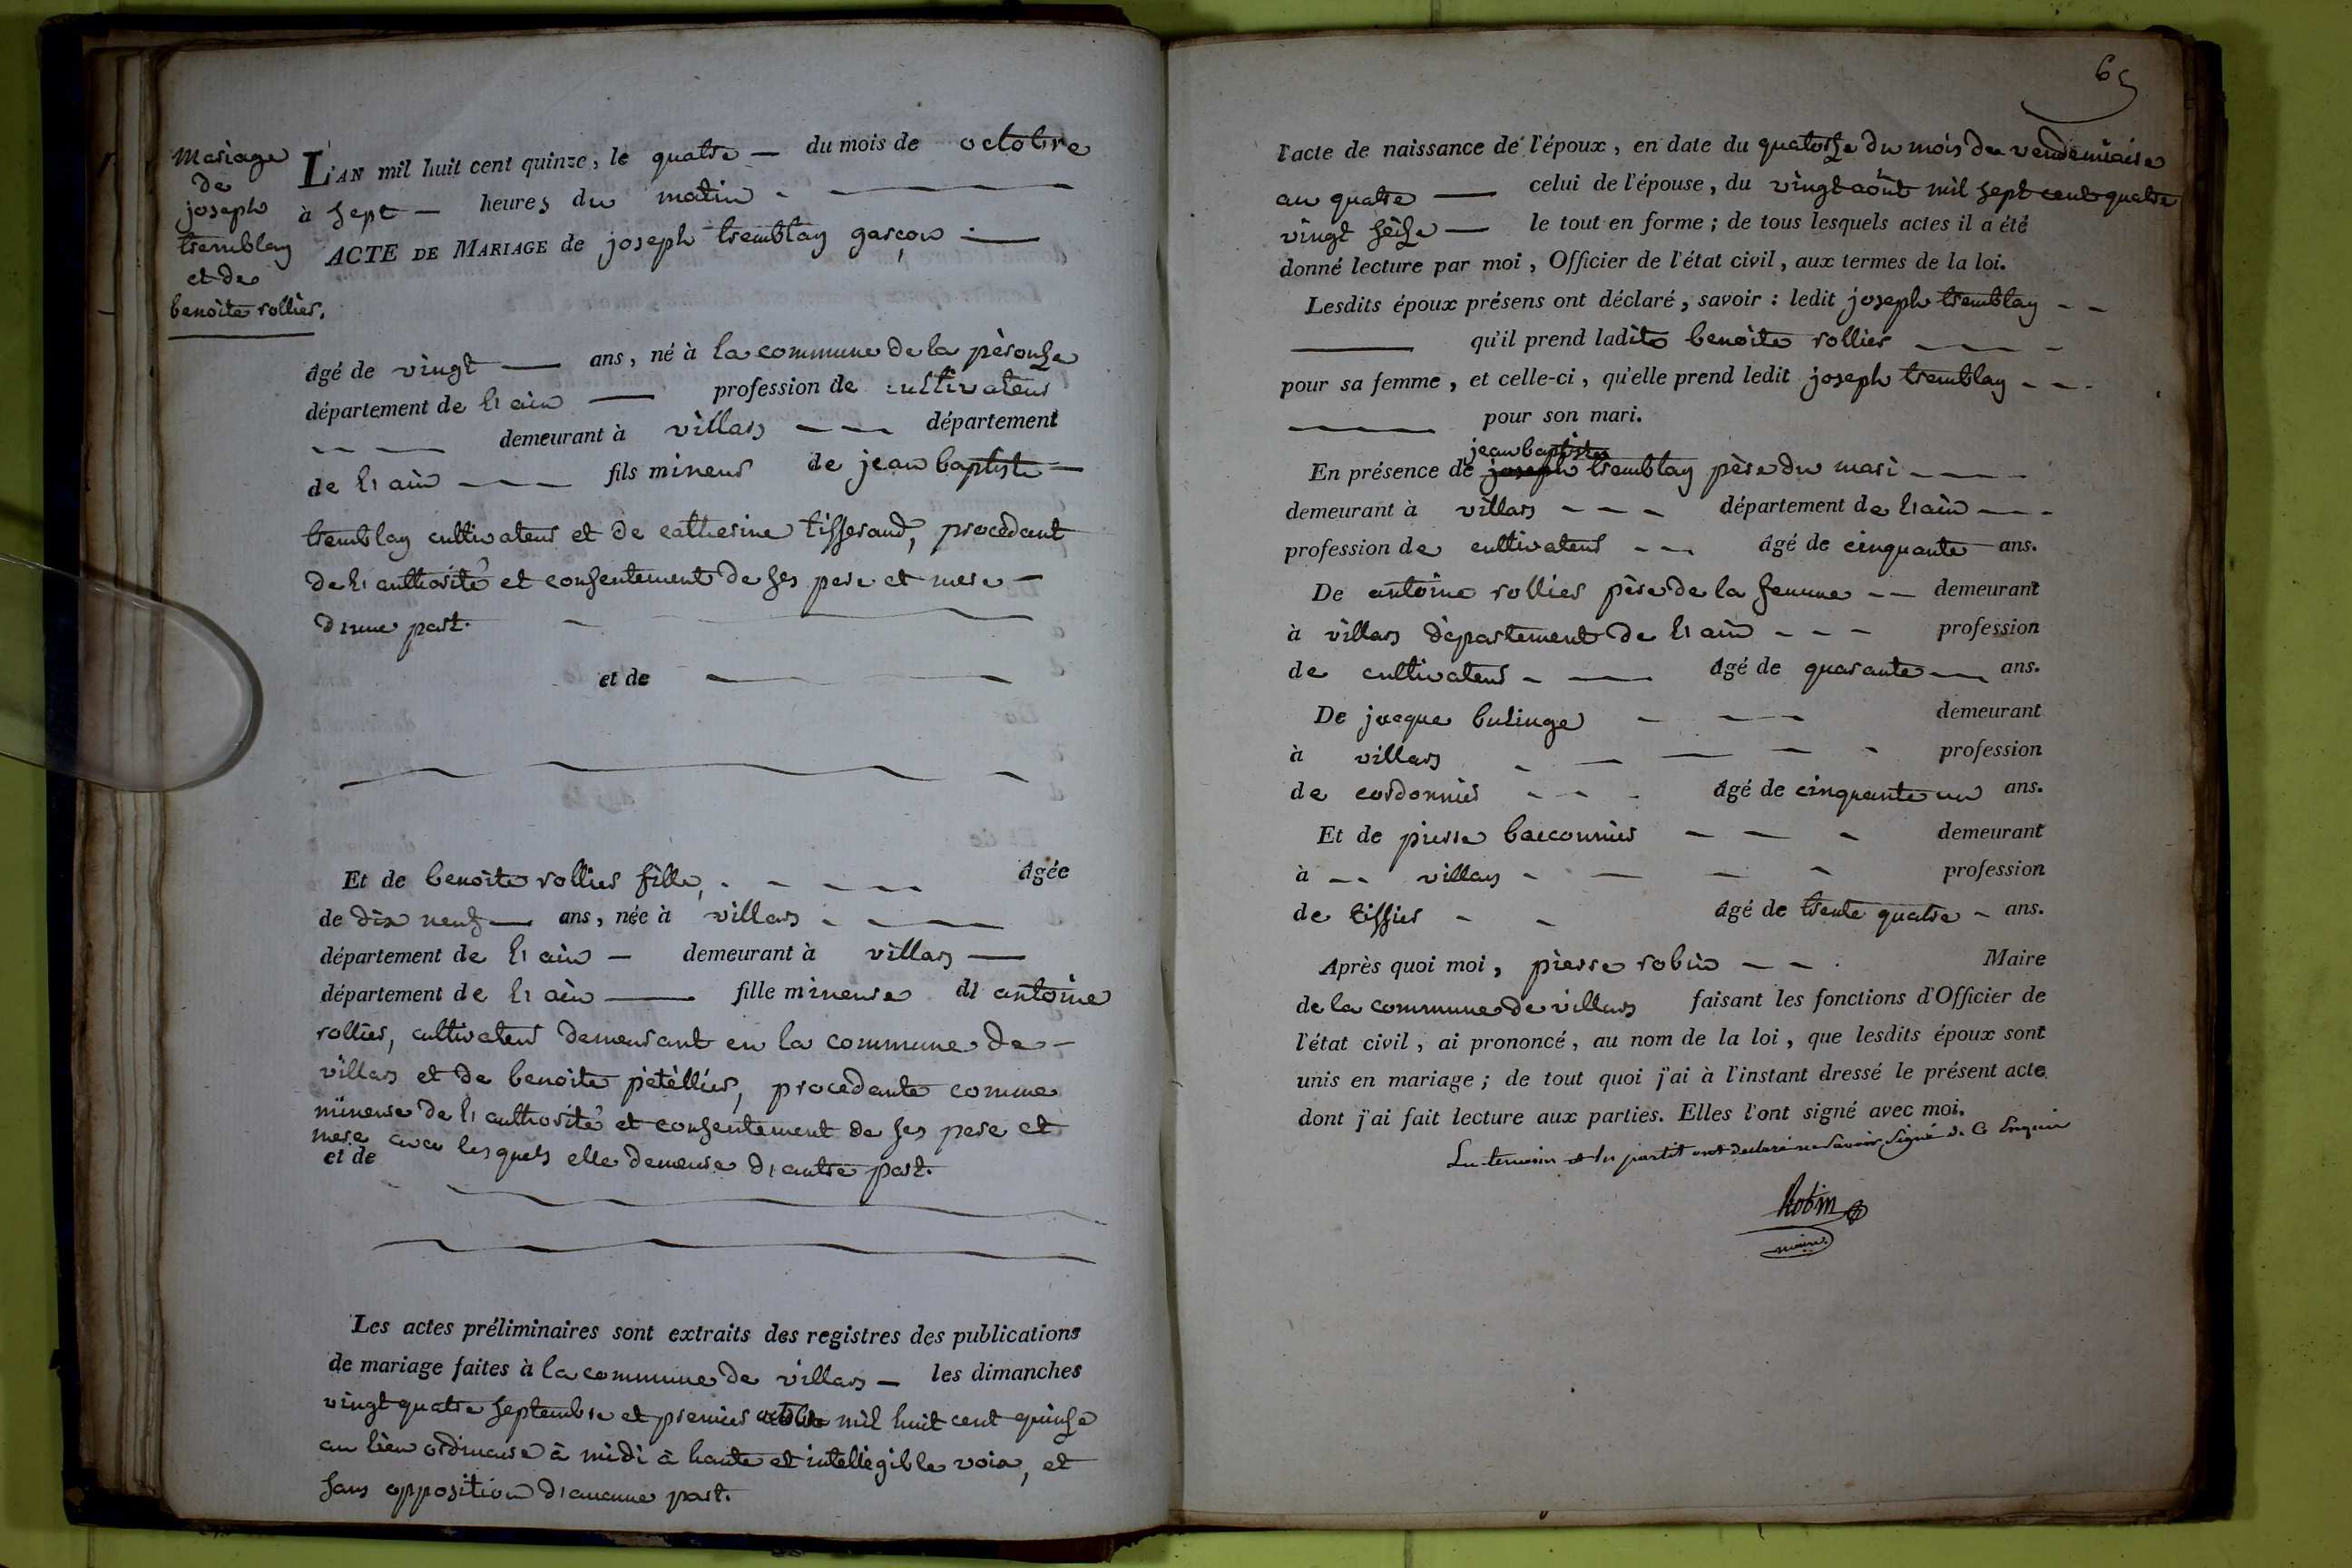 mariage
de
joseph
tremblay
et de
benoite rollier.
L'AN mil huit cent quinze, le quatre — du mois de octobre
à sept — heures du matin
ACTE DE MARIAGE de joseph tremblay garçon
âgé de vingt — ans, né à la commune de la pérouse
département de l'ain — profession de cultivateur
demeurant à villars — département
de l'ain — fils mineur de jean baptiste
tremblay cultivateur et de catherine tisserand, procedant
de l'authorité et consentement de ses pere et mere —
d'une part.
et de
Et de benoite rollier fille, âgée
de dix neuf — ans, née à villars
département de l'ain — demeurant à villars —
département de l'ain — fille mineure d'antoine
rollier, cultivateur demeurant en la commune de —
villars et de benoite pétéllier, procedante comme
mineure de l'authorité et consentement de ses pere et
mere avec lesquels elle demeure d'autre part.
et de
Les actes préliminaires sont extraits des registres des publications
de mariage faites à la commune de villars — les dimanches
vingt quatre septembre et premier octobre mil huit cent quinse
au lieu ordinaire à midi à haute et intelligible voix, et
sans opposition d'aucune part.
65
l'acte de naissance de l'époux, en date du quatorse du mois de vendemiaire
an quatre — celui de l'épouse, du vingt août mil sept cent quatre
vingt seise — le tout en forme ; de tous lesquels actes il a été
donné lecture par moi, Officier de l'état civil, aux termes de la loi.
Lesdits époux présens ont déclaré, savoir : ledit joseph tremblay
qu'il prend ladite benoite rollier
pour sa femme, et celle-ci, qu'elle prend ledit joseph tremblay
pour son mari.
jean baptiste
En présence de joseph tremblay père du mari
demeurant à villars département de l'ain
profession de cultivateur âgé de cinquante ans.
De antoine rollier père de la femme demeurant
à villars département de l'ain profession
de cultivateur âgé de quarante ans.
De jacque bulinge demeurant
à villars profession
de cordonnier âgé de cinquante un ans.
Et de pierre bacconnier demeurant
à villars profession
de tissier âgé de trente quatre ans.
Après quoi moi, pierre robin Maire
de la commune de villars faisant les fonctions d'Officier de
l'état civil, ai prononcé, au nom de la loi, que lesdits époux sont
unis en mariage ; de tout quoi j'ai à l'instant dressé le présent acte
dont j'ai fait lecture aux parties. Elles l'ont signé avec moi.
et les partit ont declaré ne savoir signé de ce
Robin
maire